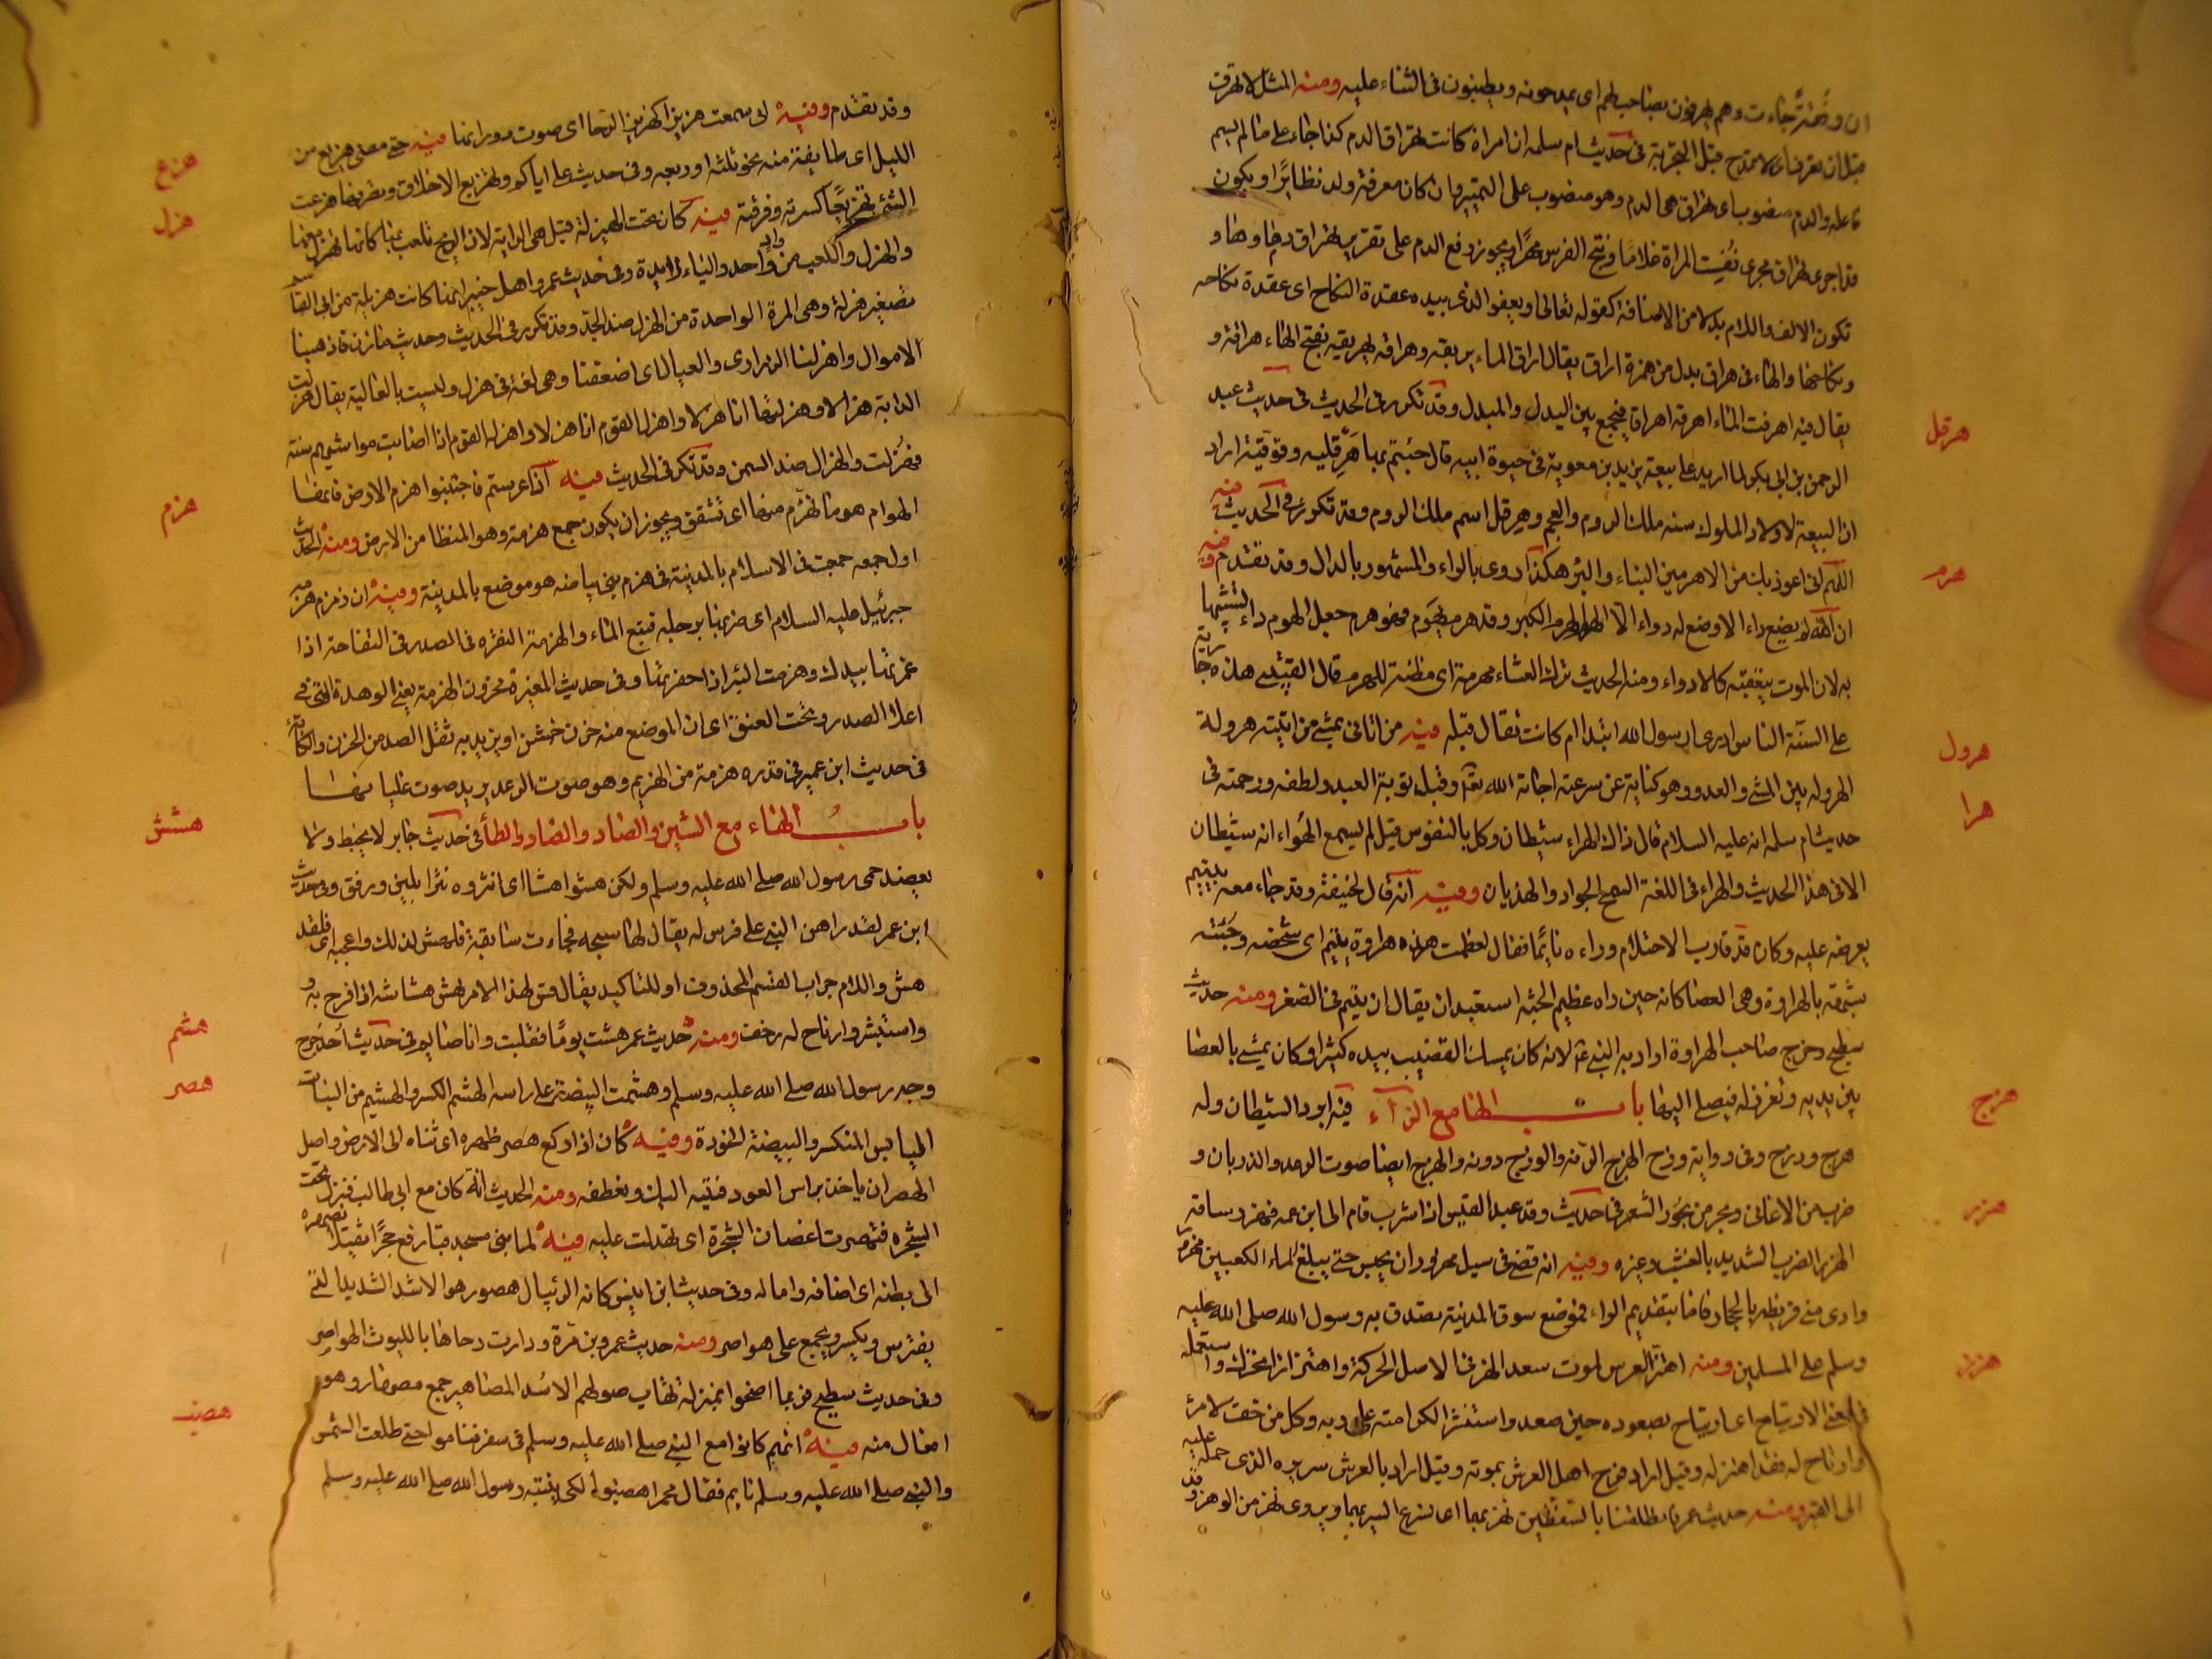 ان رفقة جاءت وهم يهرفون بصاحب لهم اى يمدحونه ويطنبون فى الثناء عليه ومنه المثل لا تهرف
قبل ان تعرف اى لا تمدح قبل التجربة فى حديث ام سلمه ان امراة كانت تهراق الدم كذا جاء على ما لم يسم
فاعله والدم منصوب اى تهراق هى الدم وهو منصوب على التمييز وان كان معرفة وله نظاير او يكون
قد اجرى تهراق مجرى نفست المراة غلاما ونتج الفرس مهرا ويجوز رفع الدم على تقرير تهراق دماوها و
تكون الالف واللام بدلا من الاضافة كقوله تعالى او يعفو الذى بيده عقدة النكاح اى عقدة نكاحه
ونكاحها والهاء فى هراق بدل من همزة اراق يقال اراق الماء يريقه وهراقه يهريقه بفتح الهاء هراقة و
يقال فيه اهرقت الماء اهرقه اهراقا فيجمع بين البدل والمبدل وقد تكرر فى الحديث فى حديث عبد
هرقل
الرحمن بن ابى بكر لما اريد على بيعة يزيد بن معوية فى حيوة ابيه قال جئتم بها هرقلية وقوقية اراد
ان البيعة لاولاد الملوك سنه ملك الروم والعجم وهرقل اسم ملك الروم وقد تكرر فى الحديث فيه
هرم
اللهم انى اعوذ بك من الاهرمين البناء والبئر هكذا روى بالراء والمشهور بالدال وقد تقدم وفيه
ان الله لم يضع داء الا وضع له دواء الا الهرم الهرم الكبر وقد هرم يهرم فهو هرم جعل الهرم داء تشبيها
به لان الموت يتعقبه كالادواء ومنه الحديث ترك العشاء مهرمة اى مظنة للهرم قال القتيبى هذه جارية
على السنة الناس ولا ادرى ا رسول الله ابتداها ام كانت تقال قبله فيه من اتانى يمشى من اتيته هرولة
هرول
الهروله بين المشى والعدو وهو كناية عن سرعة اجابة الله تعا وقبول توبة العبد ولطفه ورحمته فى
هرا
حديث ام سلمه انه عليه السلام قال ذاك الهراء شيطان وكل بالنفوس قيل لم يسمع الهراء انه شيطان
الا فى هذا الحديث والهراء فى اللغة السمح الجواد والهذيان وفيه انه قال لحنيفة وقد جاء معه بيتيم
يعرضه عليه وكان قد قارب الاحتلام وراه نايما فقال لعظمت هذه هراوة يتيم اى شخصه وجثته
شبهه بالهراوة وهى العصا كانه حين راه عظيم الجثه استبعد ان يقال ان يتيم فى الصغر ومنه حديث
سطيح وخرج صاحب الهراوة اراد به النبى ع لانه كان يمسك القضيب بيده كثيرا وكان يمشى بالعصا
بين يديه وتغرز له فيصلى اليها باب الهاء مع الزاء فيه ادبر الشيطان وله
هزج
هزج ودزج وفى رواية وزج الهزج الرنه والوزج دونه والهزج ايضا صوت الرعد والذبان و
ضرب من الاغانى وبحر من بحور الشعر فى حديث وفد عبد القيس اذا شرب قام الى ابن عمه فهزر ساقه
هزر
الهزر الضرب الشديد بالخشب وغيره وفيه انه قضى فى سيل مهزور ان يحبس حتى يبلغ الماء الكعبين مهزور
وادى بنى قريظه بالحجاز فاما بتقديم الراء فموضع سوق المدينة تصدق به رسول الله صلى الله عليه
وسلم على المسلمين ومنه اهتز العرش لموت سعد الهز فى الاصل الحركة واهتز اذا تحرك واستعمله
هزز
فى معنى الارتياح اى ارتاح بصعوده حين صعد واستبشر لكرامته على ربه وكل من خف لامر
وارتاح له فقد اهتز له وقيل اراد فرح اهل العرش بموته وقيل اراد بالعرش سريره الذى حمل عليه
الى القبر ومنه حديث عمر فانطلقنا بالسفطين نهز بهما اى نسرع السير بهما ويروى نهز من الوهز وقد
وقد تقدم وفيه انى سمعت هزيزا كهزيز الرحا اى صوت دورانها فيه حتى مضى هزيع من
هزع
الليل اى طايفة منه نحو ثلثه او ربعه وفى حديث على اياكم وتهزيع الاخلاق وتصرفها هزعت
الشئ تهزيعا كسرته وفرقته فيه كان تحت الهيزلة قيل هى الراية لان الريح تلعب بها كانها تهزل معها
هزل
والهزل واللعب من واد واحد والياء زايدة وفى حديث عمر واهل خيبر انما كانت هزيلة من ابى القاسم
تصغير هزلة وهى المرة الواحدة من الهزل ضد الجد وقد تكرر فى الحديث وحديث مازن فاذهبنا
الاموال واهزلنا الذرارى والعيال اى اضعفنا وهى لغة فى هزل وليست بالعالية يقال هزلت
الدابة هزالا وهزلتها انا هزلا واهزل القوم انا هزلا واهزل القوم اذا اصابت مواشيهم سنة
فهزلت والهزال ضد السمن وقد تكرر فى الحديث فيه اذا عرستم فاجتنبوا هزم الارض فانها
هزم
الهوام هو ما تهزم منها اى تشقق ويجوز ان يكون جمع هزمة وهو المتطامن من الارض ومنه الحديث
اول جمعه جمعت فى الاسلام بالمدينة فى هزم بنى بياضه هو موضع بالمدينة وفيه ان زمزم هزمه
جبرئيل عليه السلام اى ضربها برجله فنبع الماء والهزمة النقره فى الصدر فى التفاحة اذا
غمزتها بيدك وهزمت البئر اذا حفرتها وفى حديث المغيرة محزون الهزمة يعنى الوهدة التى فى
اعلا الصدر وتحت العنق اى ان الموضع منه حزن خشن او يريد به ثقل الصدر من الحزن والكآبة
فى حديث ابن عمر فى قدره هزمة من الهزيم وهو صوت الرعد يريد صوت غليانها
باب الهاء مع الشين والصاد والضاد والطأ فى حديث جابر لا يخبط ولا
هشش
يعضد حمى رسول الله صلى الله عليه وسلم ولكن هشوا هشا اى انثروه نثرا بلين ورفق وفى حديث
ابن عمر لقد راهن النبى على فرس له يقال لها سبحه فجاءت سابقة فلهش لذلك واعجبه اى فلقد
هش واللام جواب القسم المحذوف او للتاكيد يقال هش لهذا الامر يهش هشاشه اذا فرح به و
واستبشر وارتاح له وخف ومنه حديث عمر هششت يوما فقبلت وانا صايم فى حديث احد جرح
هشم
وجه رسول الله صلى الله عليه وسلم وهشمت البيضة على راسه الهشم الكسر والهشيم من النبات
هصر
اليابس المتكسر والبيضة الخوذة وفيه كان اذا ركع هصر ظهره اى ثناه الى الارض واصل
الهصر ان ياخذ براس العود فتثنيه اليك وتعطفه ومنه الحديث انه كان مع ابى طالب فنزل تحت
الشجره فتهصرت اغصان الشجرة اى تهدلت عليه فيه لما بنى مسجد قبا رفع حجرا ثقيلا فهصره
الى بطنه اى اضافه واماله وفى حديث ابن انيس كانه الرئبال هصور هو الاسد الشديد الذى
يفترس ويكسر ويجمع على هواصر ومنه حديث عمرو بن مرة ودارت رحاها بالليوث الهواصر
وفى حديث سطيح فربما اضحوا بمنزلة تهاب صولهم الاسد المهاصير جمع مهصار وهو
مفعال منه فيه انهم كانوا مع النبى صلى الله عليه وسلم فى سفر فناموا حتى طلعت الشمس
هضب
والنبى صلى الله عليه وسلم نايم فقال عمر اهضبوا لكى ينتبه رسول الله صلى الله عليه وسلم